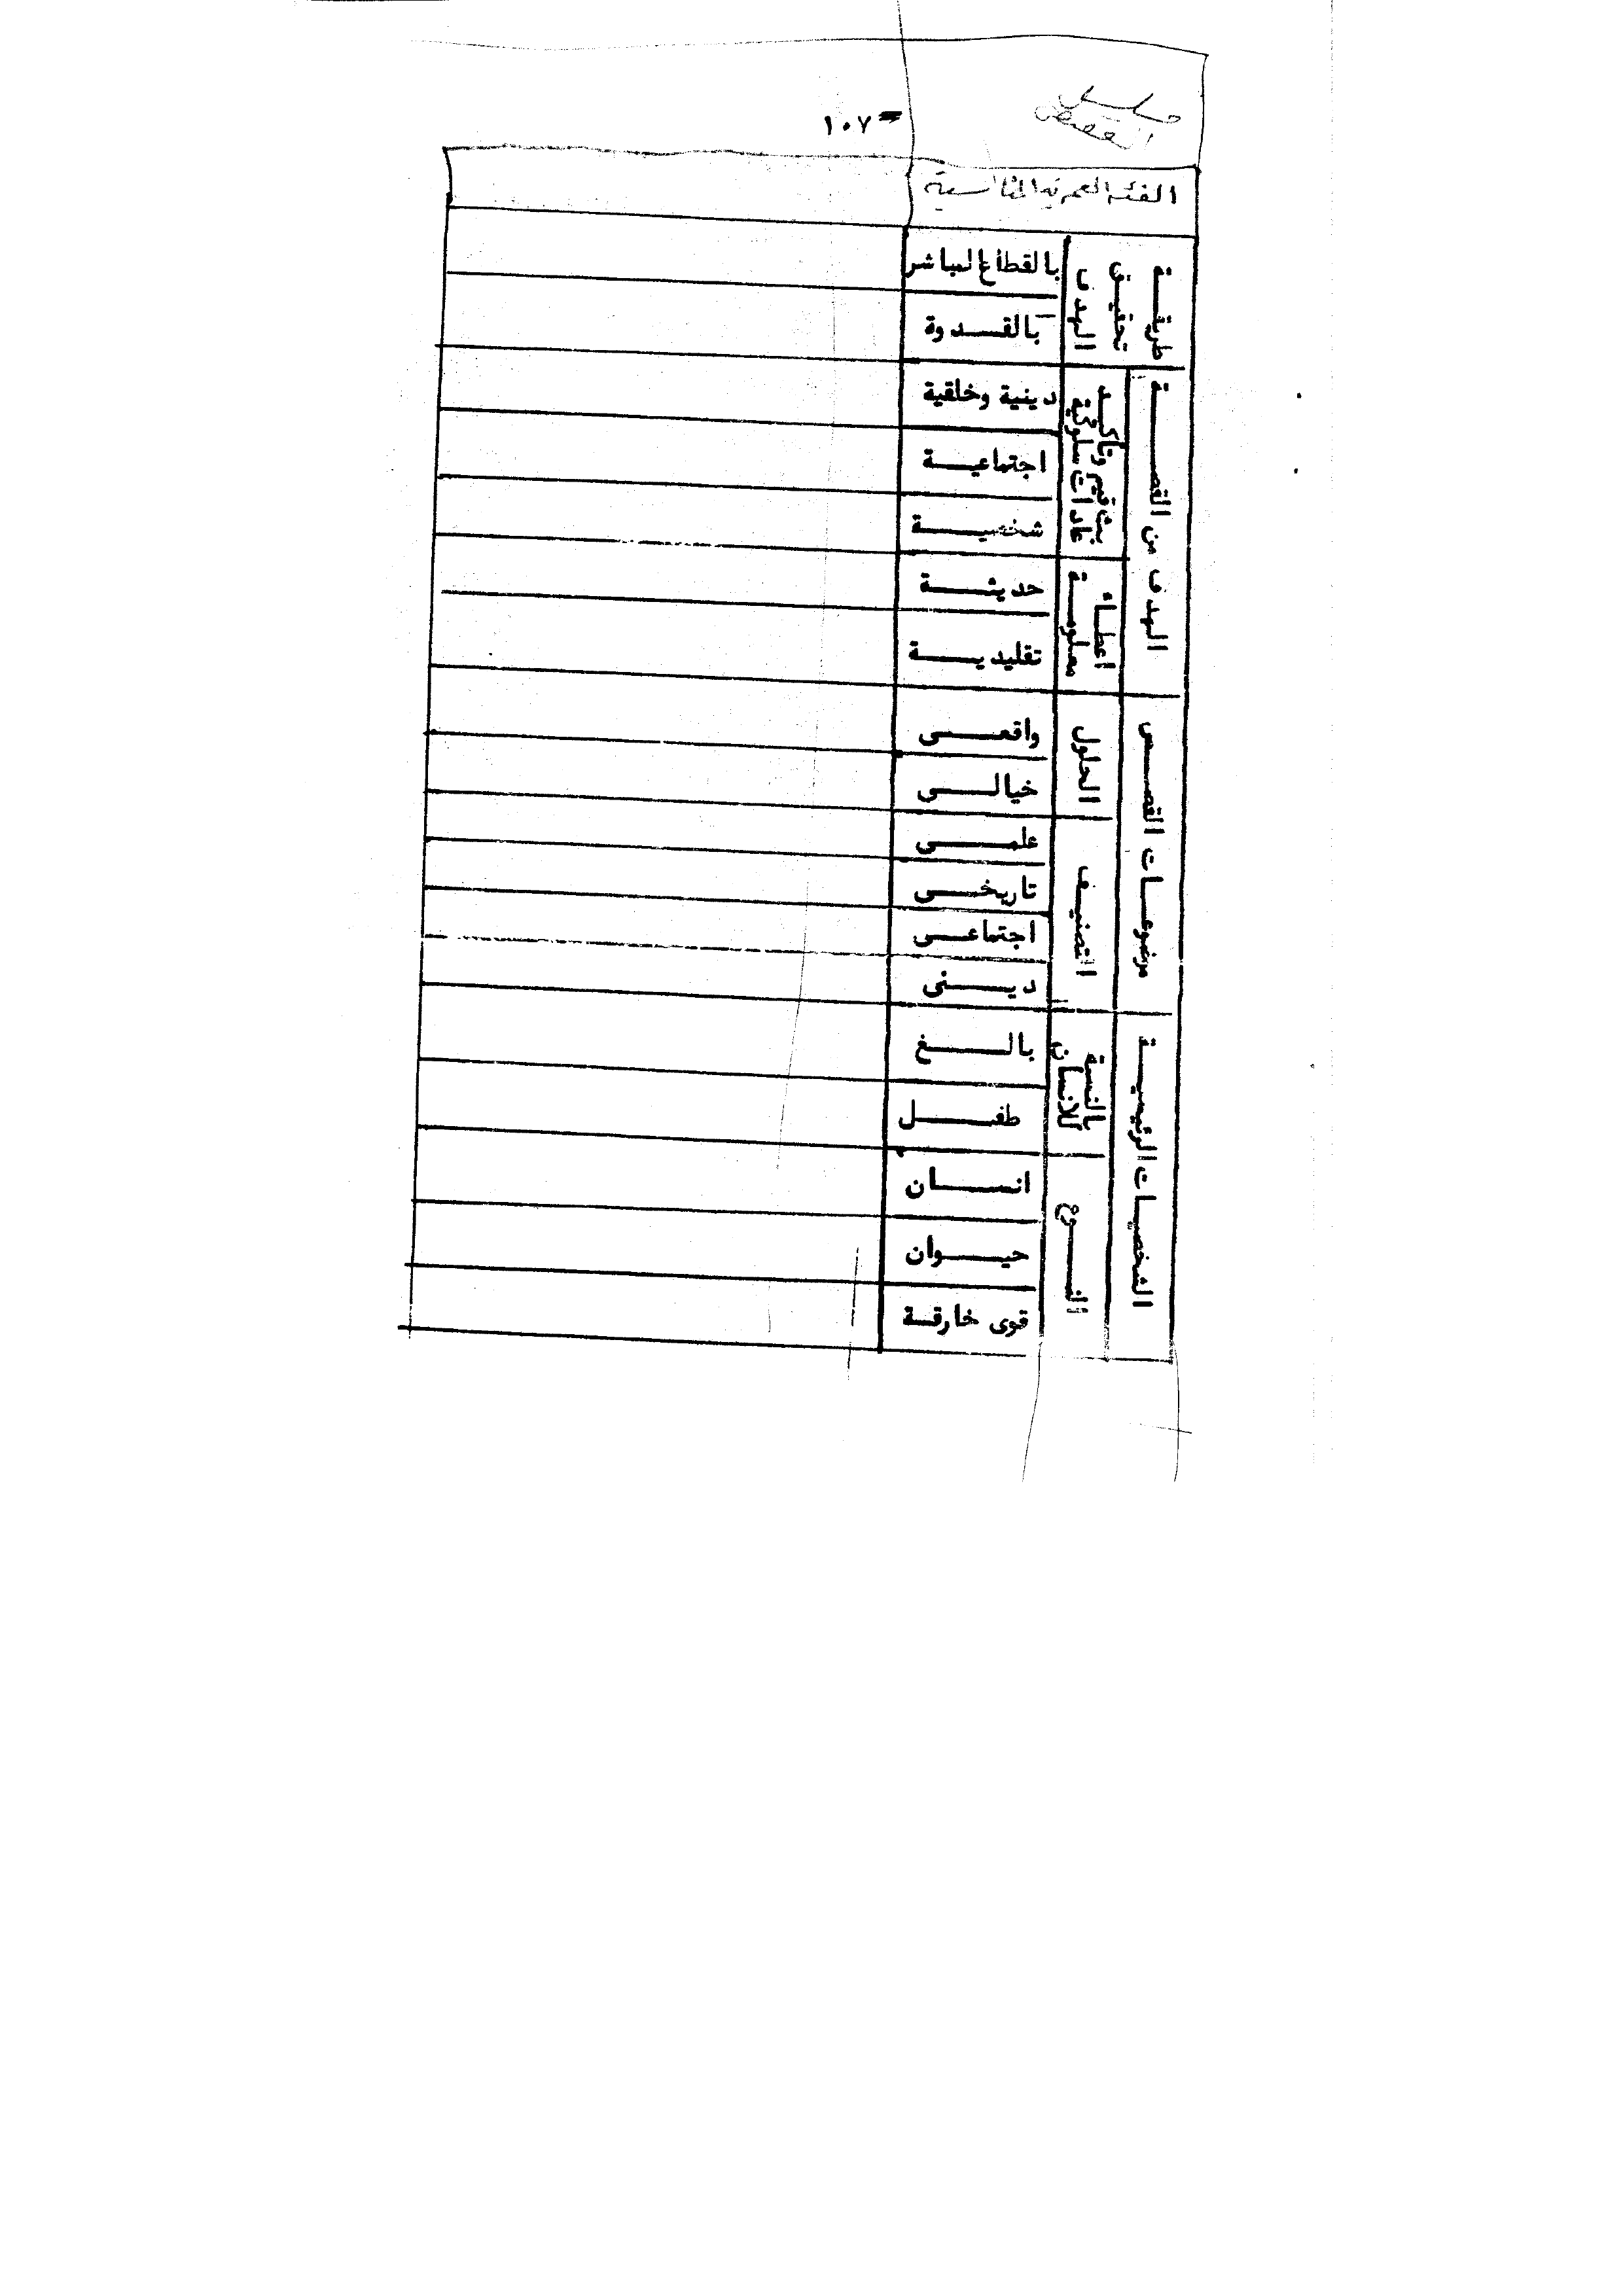 ١٠٧ =
الفئة العمرية المناسبة
طريقة تحقيق الهدف
بالقطاع المباشر
بالقدوة
الهدف من القصة
بث قيم وتأكيد عادات سلوكية
دينية وخلقية
اجتماعية
شخصية
اعطاء معلومة
حديثة
تقليدية
موضوعات القصص
الحلول
واقعى
خيالى
التصنيف
علمى
تاريخى
اجتماعى
دينى
الشخصيات الرئيسية
بالنسبة للانسان
بالغ
طفل
النوع
انسان
حيوان
قوى خارقة